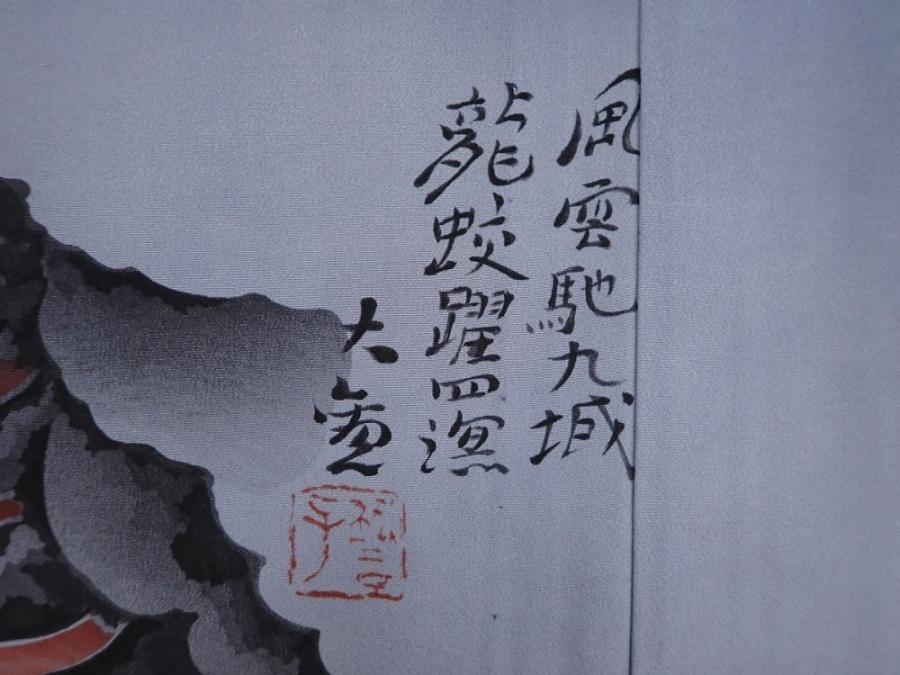 風雲馳九城
龍蛟躍四溟
大